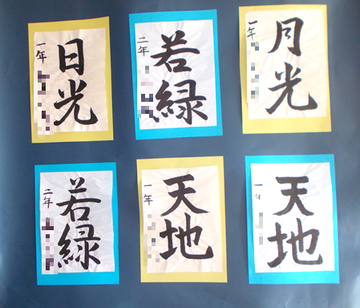 日光
一年
若緑
二年
月光
一年
若緑
二年
天地
一年
天地
一年